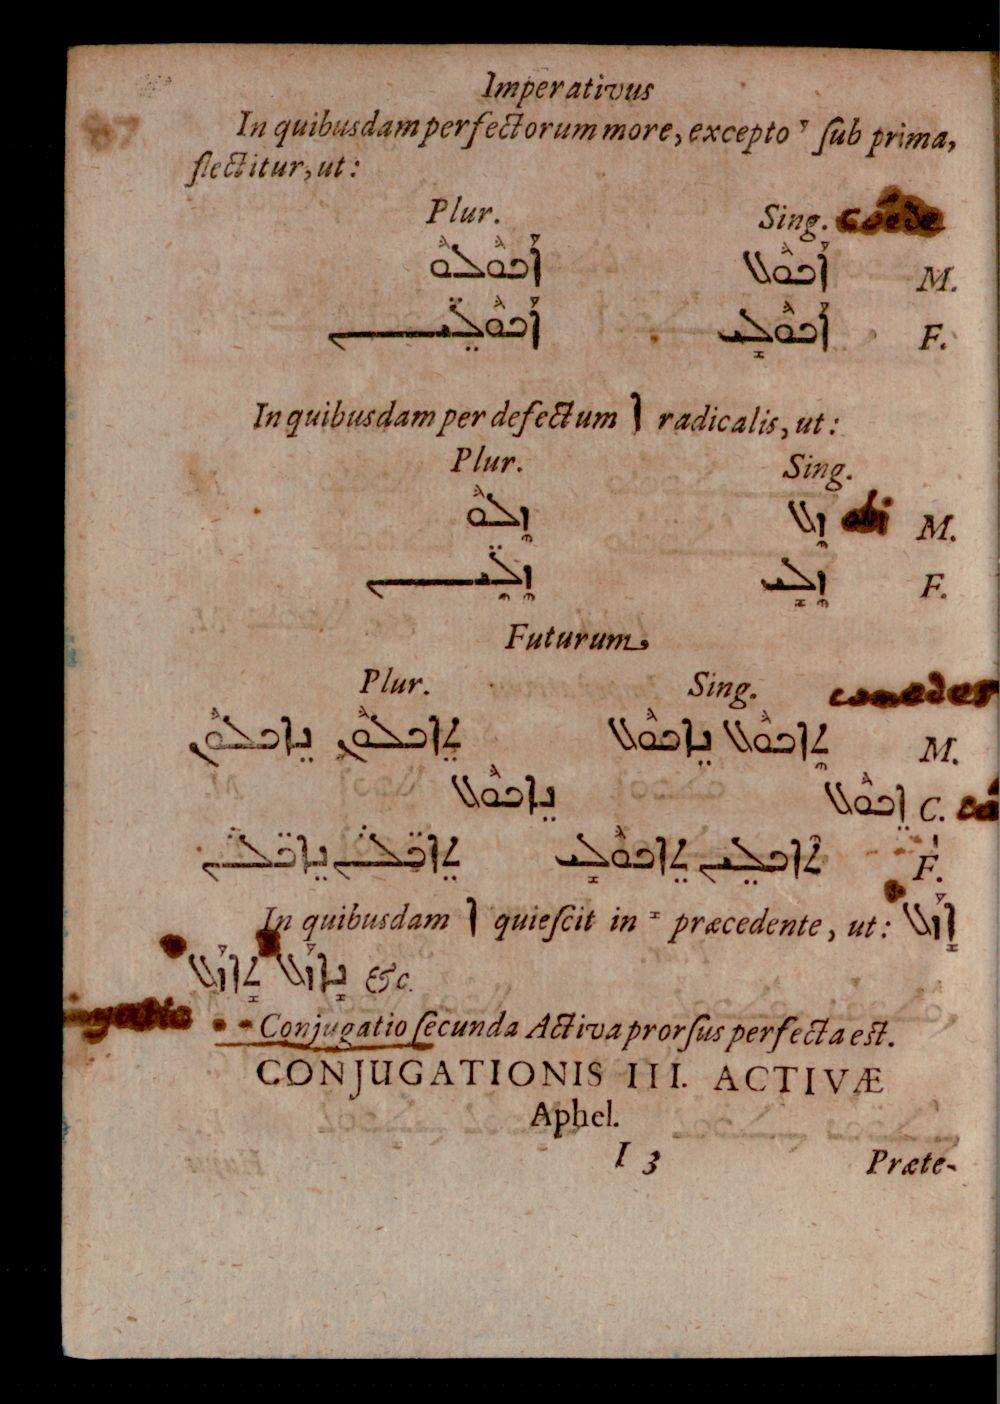 Imperativus
In quibusdam perfectorum more, excepto ʸ ſub prima,
flectitur, ut:
Plur. Sing. coede
ܐܰܟܽܘܠܽܘ ܐܰܟܽܘܠ M.
ܐܰܟܽܘܠܶܝ̈ܢ ܐܰܟܽܘܠܺܝ F.
In quibusdam per defectum ܐ radicalis, ut:
Plur. Sing.
ܙܶܠܽܘ ܙܶܠ abi M.
ܙܶܠܶܝ̈ܢ ܙܶܠܺܝ F.
Futurum,
Plur. Sing. comedes
ܢܶܐܟܠܽܘܢ ܬܶܐܟܠܽܘܢ ܢܶܐܟܽܘܠ ܬܶܐܟܽܘܠ M.
ܢܶܐܟܽܘܠ ܐܶܟܽܘܠ C.
ܢܶܐܟ̈ܠܢ ܬܶܐܟ̈ܠܢ ܬܶܐܟܽܘܠܺܝ ܬܶܐܟܠܝܢ F.
In quibusdam ܐ quieſcit in ܺ præcedente, ut: ܐܺܙܰܠ
ܬܺܐܙܰܠ ܢܺܐܙܰܠ &c.
Conjugatio ſecunda Activa prorſus perfecta est.
CONJUGATIONIS III. ACTIVÆ
Aphel.
I 3 Præte-